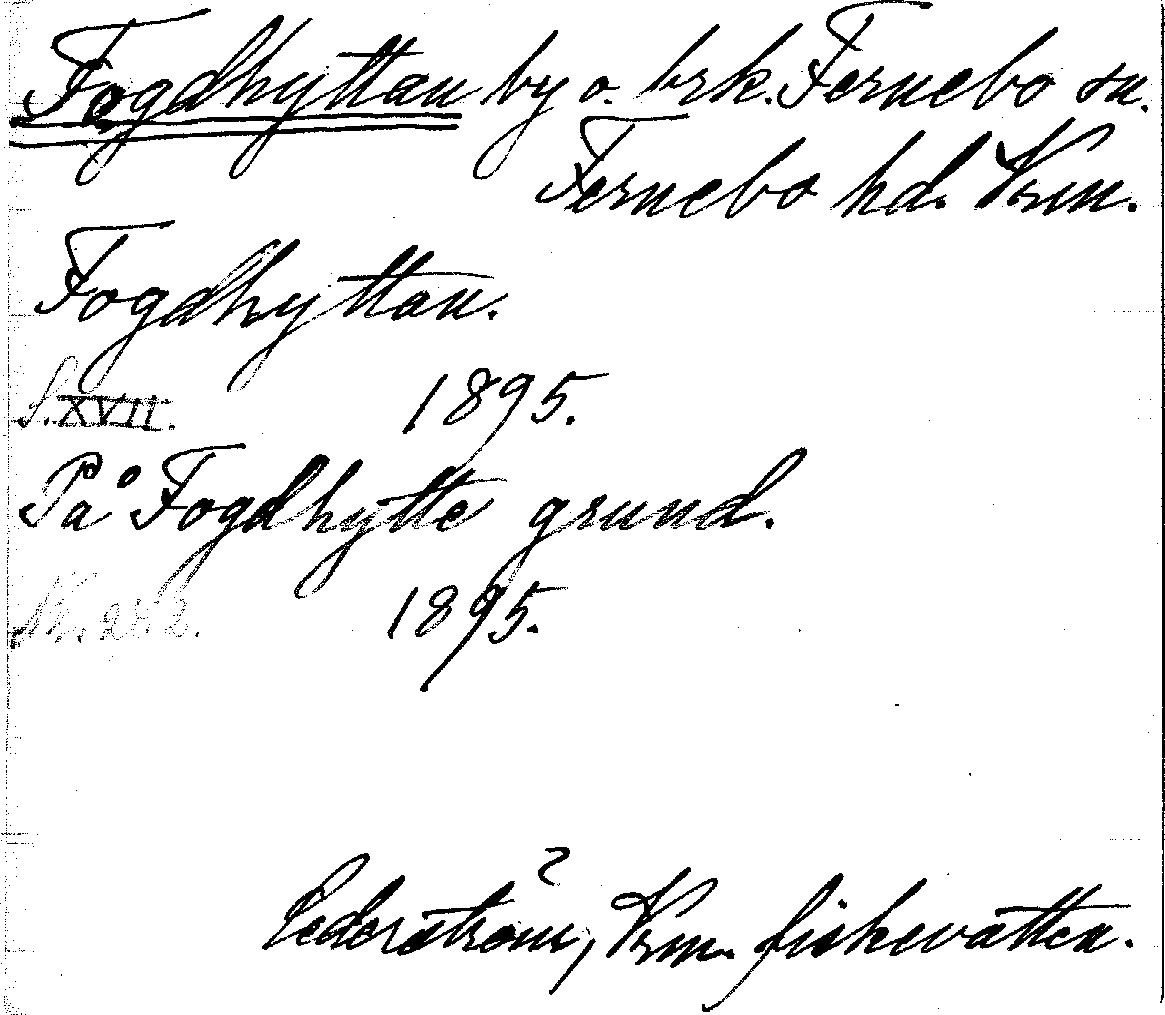 Fogdhyttan by o. brk. Fernebo sn.
Fernebo hd. Vrm.
Fogdhyttan.
S. XVII. 1895.
På Fogdhytte grund.
1895.
Cederström, Vrm. fiskevatten.